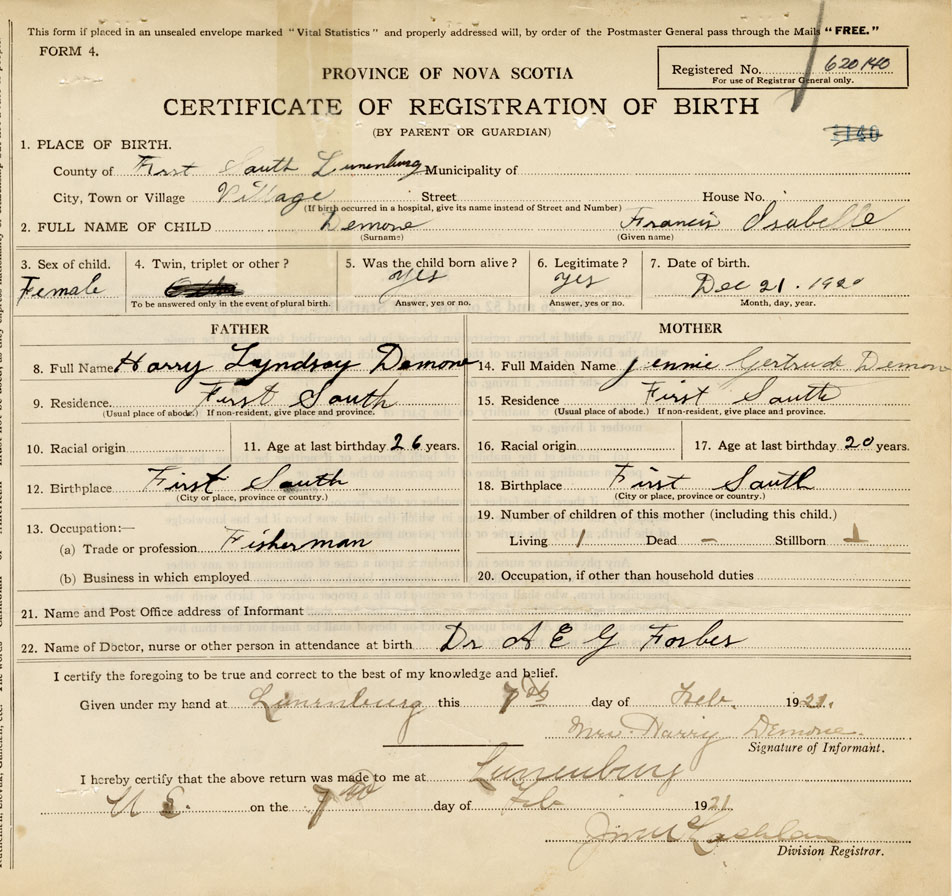 This form if placed in an unsealed envelope marked "Vital Statistics" and properly addressed will, by order of the Postmaster General pass through the Mails "FREE."
FORM 4.
Registered No. 620140
For use of Registrar General only.
PROVINCE OF NOVA SCOTIA
CERTIFICATE OF REGISTRATION OF BIRTH
(BY PARENT OR GUARDIAN)
1140
1. PLACE OF BIRTH.
County of First South Lunenburg Municipality of
City, Town or Village Village Street House No.
(If birth occurred in a hospital, give its name instead of Street and Number)
2. FULL NAME OF CHILD Demone Francis Isabelle
(Surname) (Given name)
3. Sex of child. 4. Twin, triplet or other? 5. Was the child born alive? 6. Legitimate? 7. Date of birth.
Female yes yes Dec 21. 1920
To be answered only in the event of plural birth. Answer, yes or no. Answer, yes or no. Month, day, year.
FATHER MOTHER
8. Full Name Harry Lyndsay Demone 14. Full Maiden Name Jennie Gertrude Demone
9. Residence. First South 15. Residence First South
(Usual place of abode.) If non-resident, give place and province. (Usual place of abode.) If non-resident, give place and province.
10. Racial origin 11. Age at last birthday 26 years. 16. Racial origin 17. Age at last birthday 20 years.
12. Birthplace First South 18. Birthplace First South
(City or place, province or country.) (City or place, province or country.)
13. Occupation:— 19. Number of children of this mother (including this child.)
(a) Trade or profession Fisherman Living 1 Dead – Stillborn 1
(b) Business in which employed 20. Occupation, if other than household duties
21. Name and Post Office address of Informant
22. Name of Doctor, nurse or other person in attendance at birth Dr A E G Forbes
I certify the foregoing to be true and correct to the best of my knowledge and belief.
Given under my hand at Lunenburg this 7th day of Feb. 1921.
Mrs. Harry Demone.
Signature of Informant.
I hereby certify that the above return was made to me at Lunenburg
N S. on the 7th day of Feb 1921
Division Registrar.